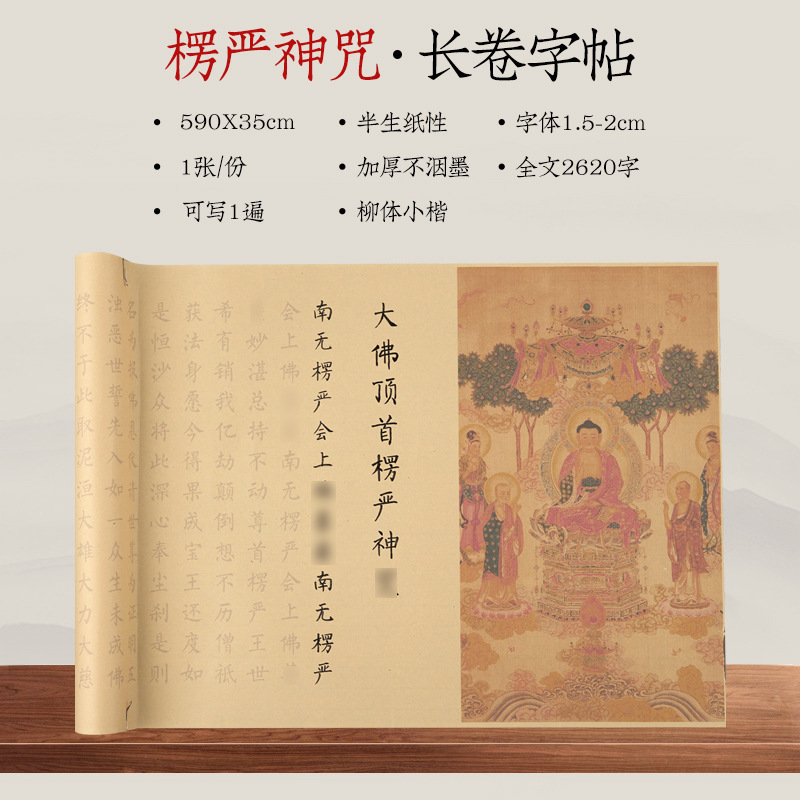 楞严神咒·长卷字帖
• 590X35cm
• 半生纸性
• 字体1.5-2cm
• 1张/份
• 加厚不洇墨
• 全文2620字
• 可写1遍
• 柳体小楷
大佛顶首楞严神
南无楞严会上 南无楞严
会上佛 南无楞严会上佛
妙湛总持不动尊首楞严王世
希有销我亿劫颠倒想不历僧祇
获法身愿今得果成宝王还度如
是恒沙众将此深心奉尘刹是则
浊恶世誓先入如一众生未成佛
终不于此取泥洹大雄大力大慈